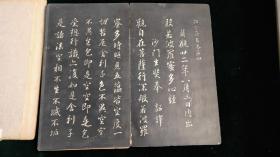 貞觀廿二年八月日內出
般若波羅蜜多心經
沙門玄奘奉 詔譯
觀自在菩薩行深般若波羅
蜜多時照見五蘊皆空度一
切苦厄舍利子色不異空空
不異色色即是空空即是色
受想行識亦復如是舍利子
是諸法空相不生不滅不垢